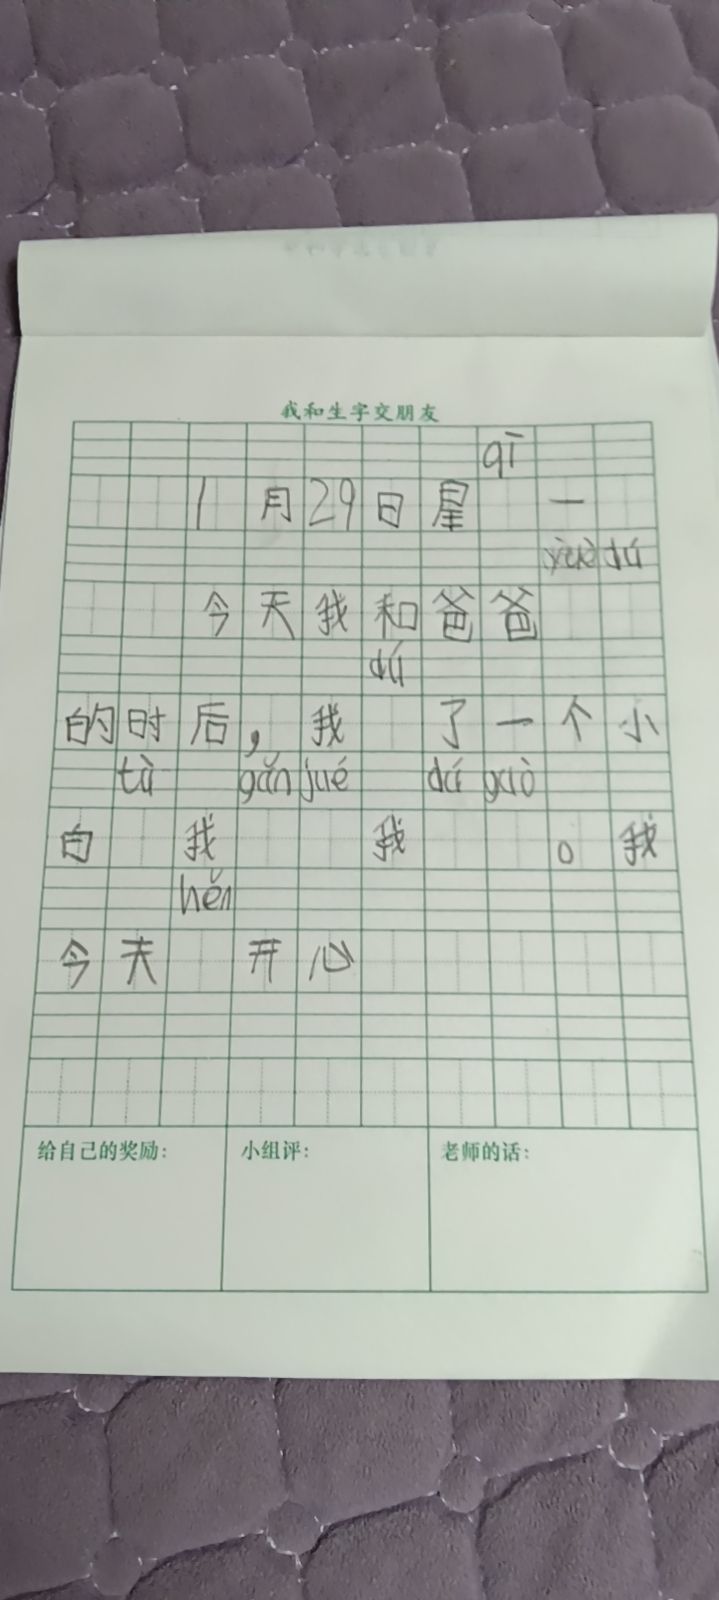 我和生字交朋友
qī
1月29日星 一
yuè dú
今天我和爸爸
dú
的时后，我 了一个小
tù gǎn jué dú guò
白 我 我 。我
hěn
今天 开心
给自己的奖励： 小组评： 老师的话：